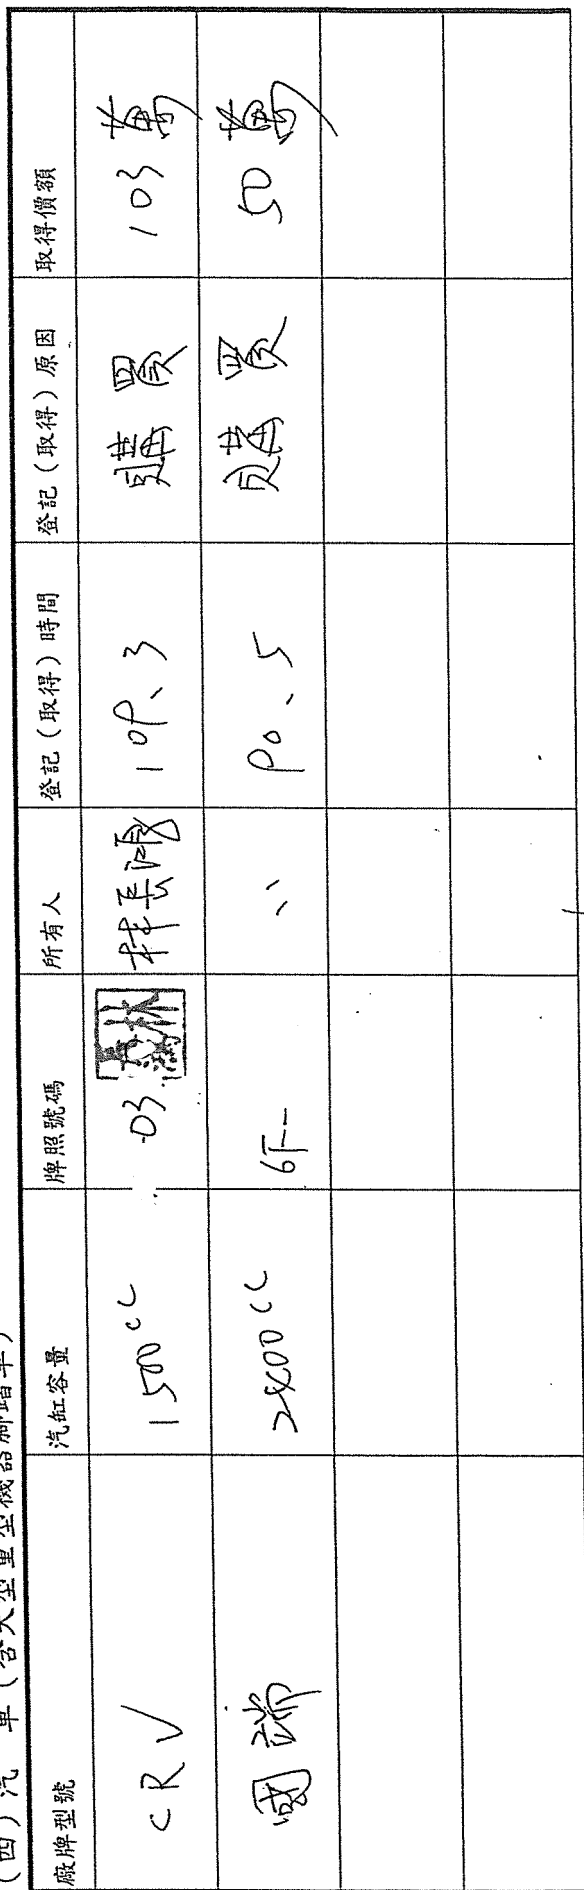 (四)汽 車(含大型重型機器腳踏車)
廠牌型號 汽缸容量 牌照號碼 所有人 登記(取得)時間 登記(取得)原因 取得價額
CRV 1500cc 03 林長 109、3 購買 103萬
國瑞 2400cc 6F-- 〃 90、5 購買 50萬